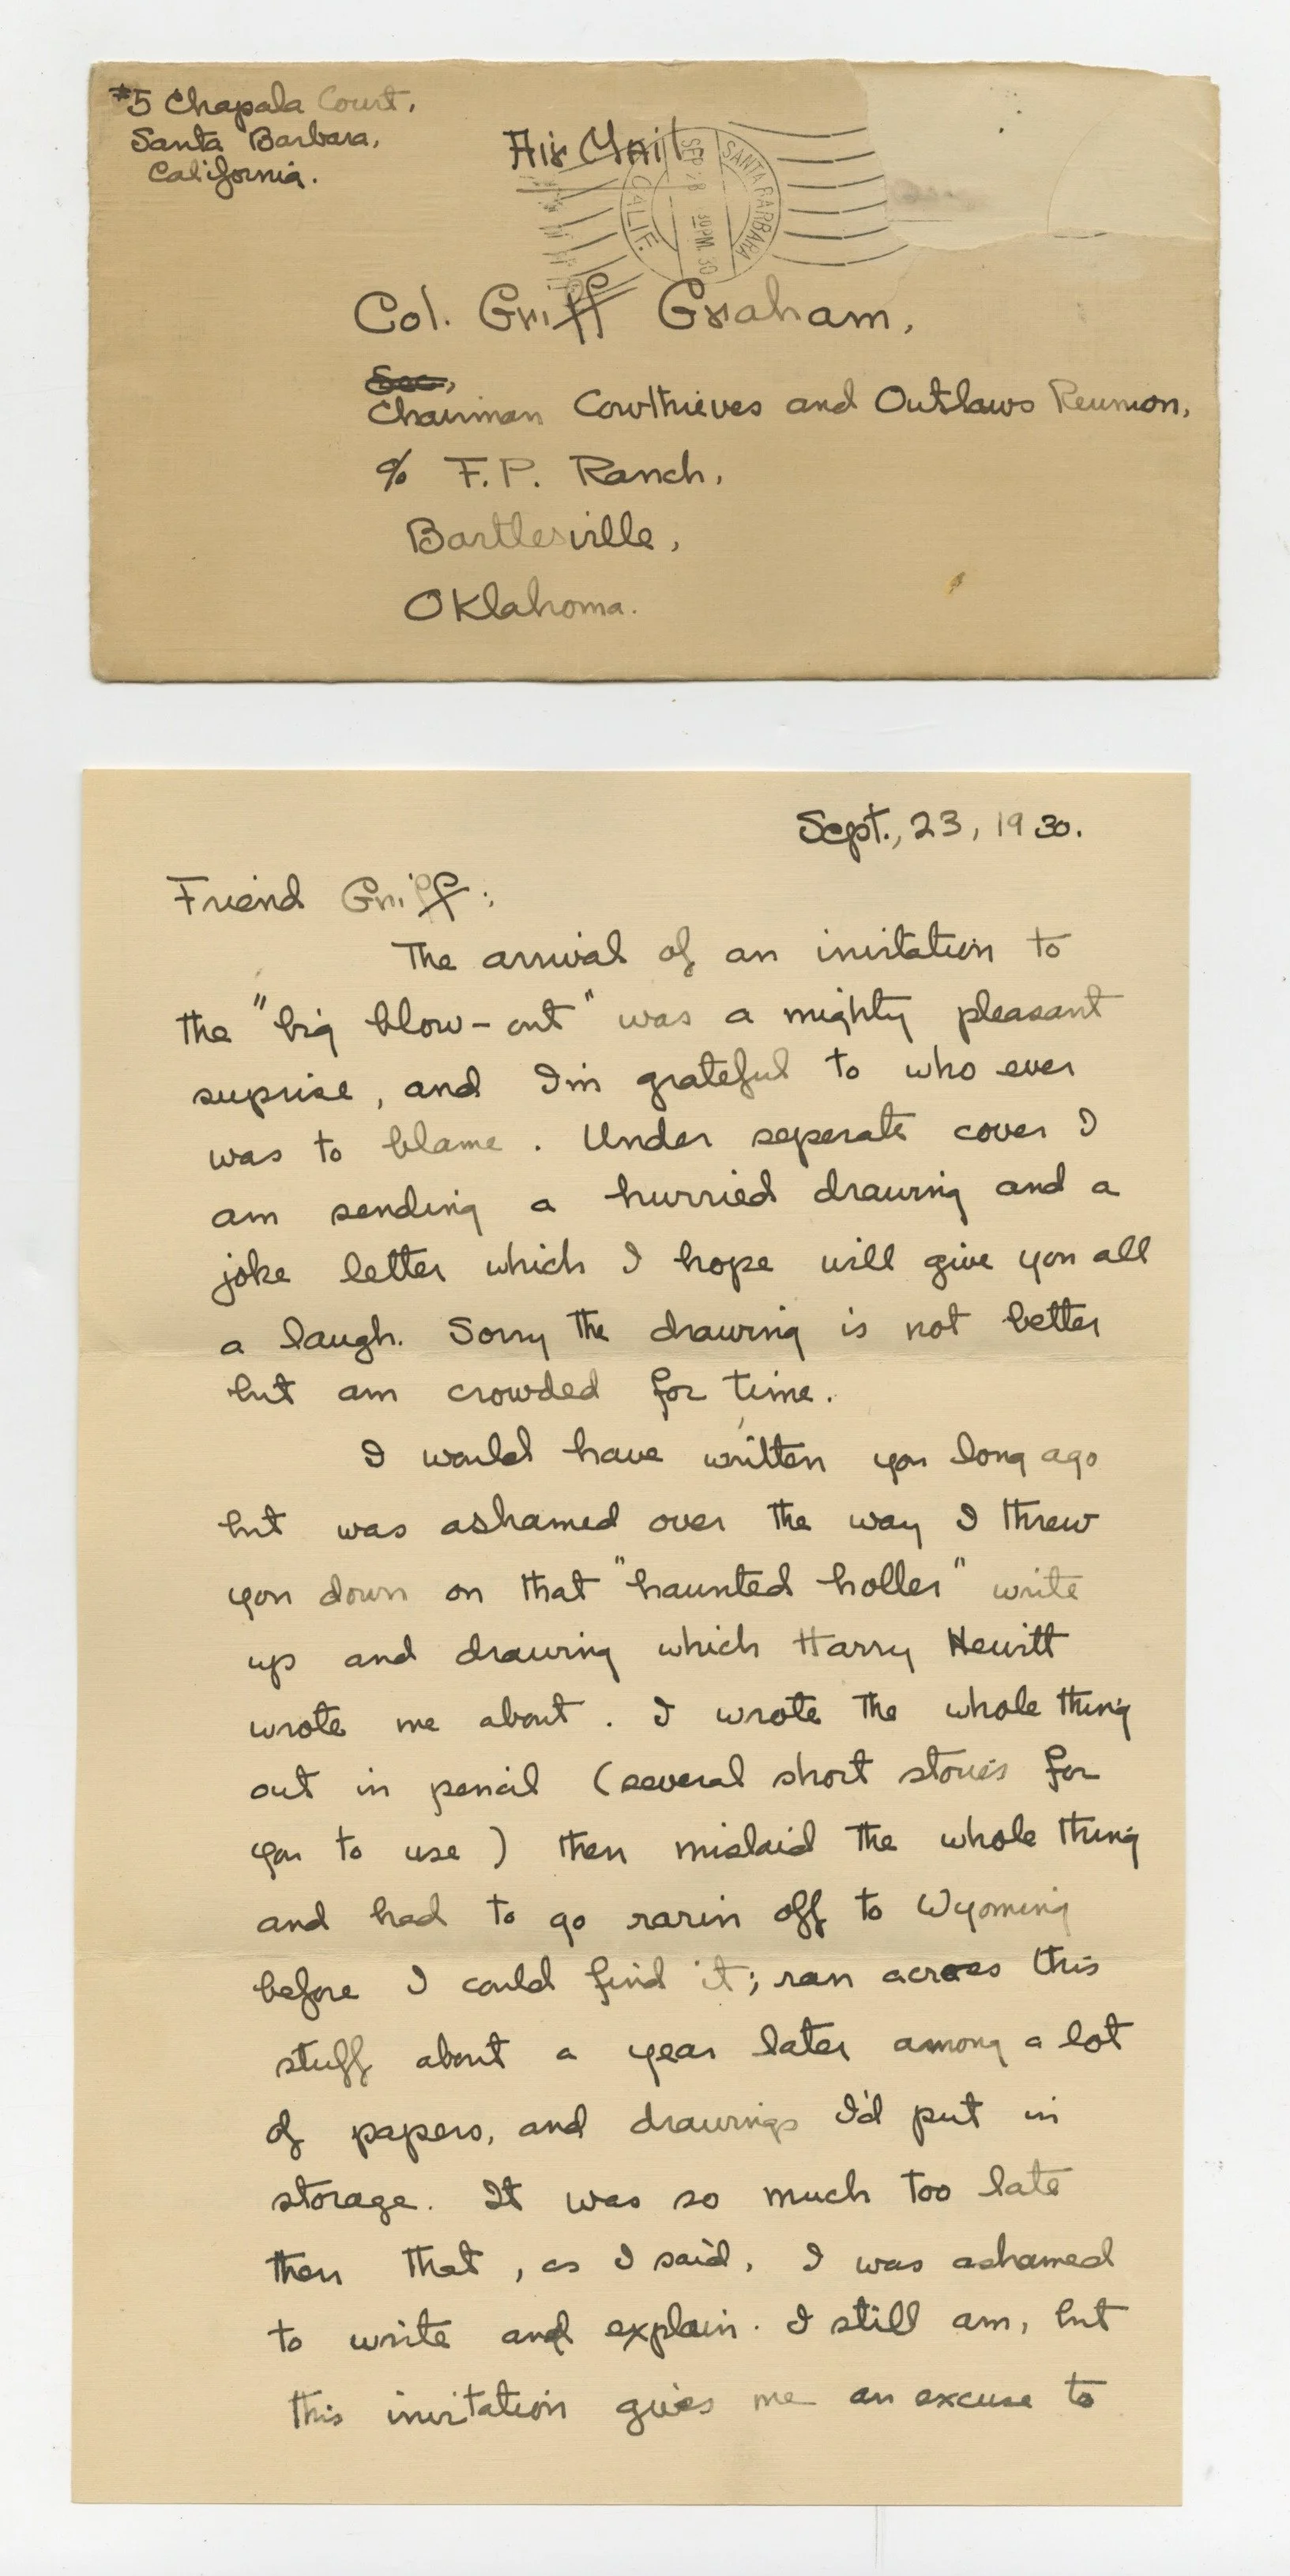 #5 Chapala Court,
Santa Barbara,
California.
Air Mail
SANTA BARBARA
CALIF.
SEP 28
30 PM 30
Col. Griff Graham,
Sec,
Chairman Cowthieves and Outlaws Reunion,
% F.P. Ranch,
Bartlesville,
Oklahoma.
Sept., 23, 1930.
Friend Griff:
The arrival of an invitation to
the "big blow-out" was a mighty pleasant
suprise, and I'm grateful to who ever
was to blame. Under seperate cover I
am sending a hurried drawing and a
joke letter which I hope will give you all
a laugh. Sorry the drawing is not better
but am crowded for time.
I would have written you long ago
but was ashamed over the way I threw
you down on that "haunted holler" write
up and drawing which Harry Hewitt
wrote me about. I wrote the whole thing
out in pencil (several short stories for
you to use) then mislaid the whole thing
and had to go rarin off to Wyoming
before I could find it; ran across this
stuff about a year later among a lot
of papers, and drawings I'd put in
storage. It was so much too late
then that, as I said, I was ashamed
to write and explain. I still am, but
this invitation gives me an excuse to